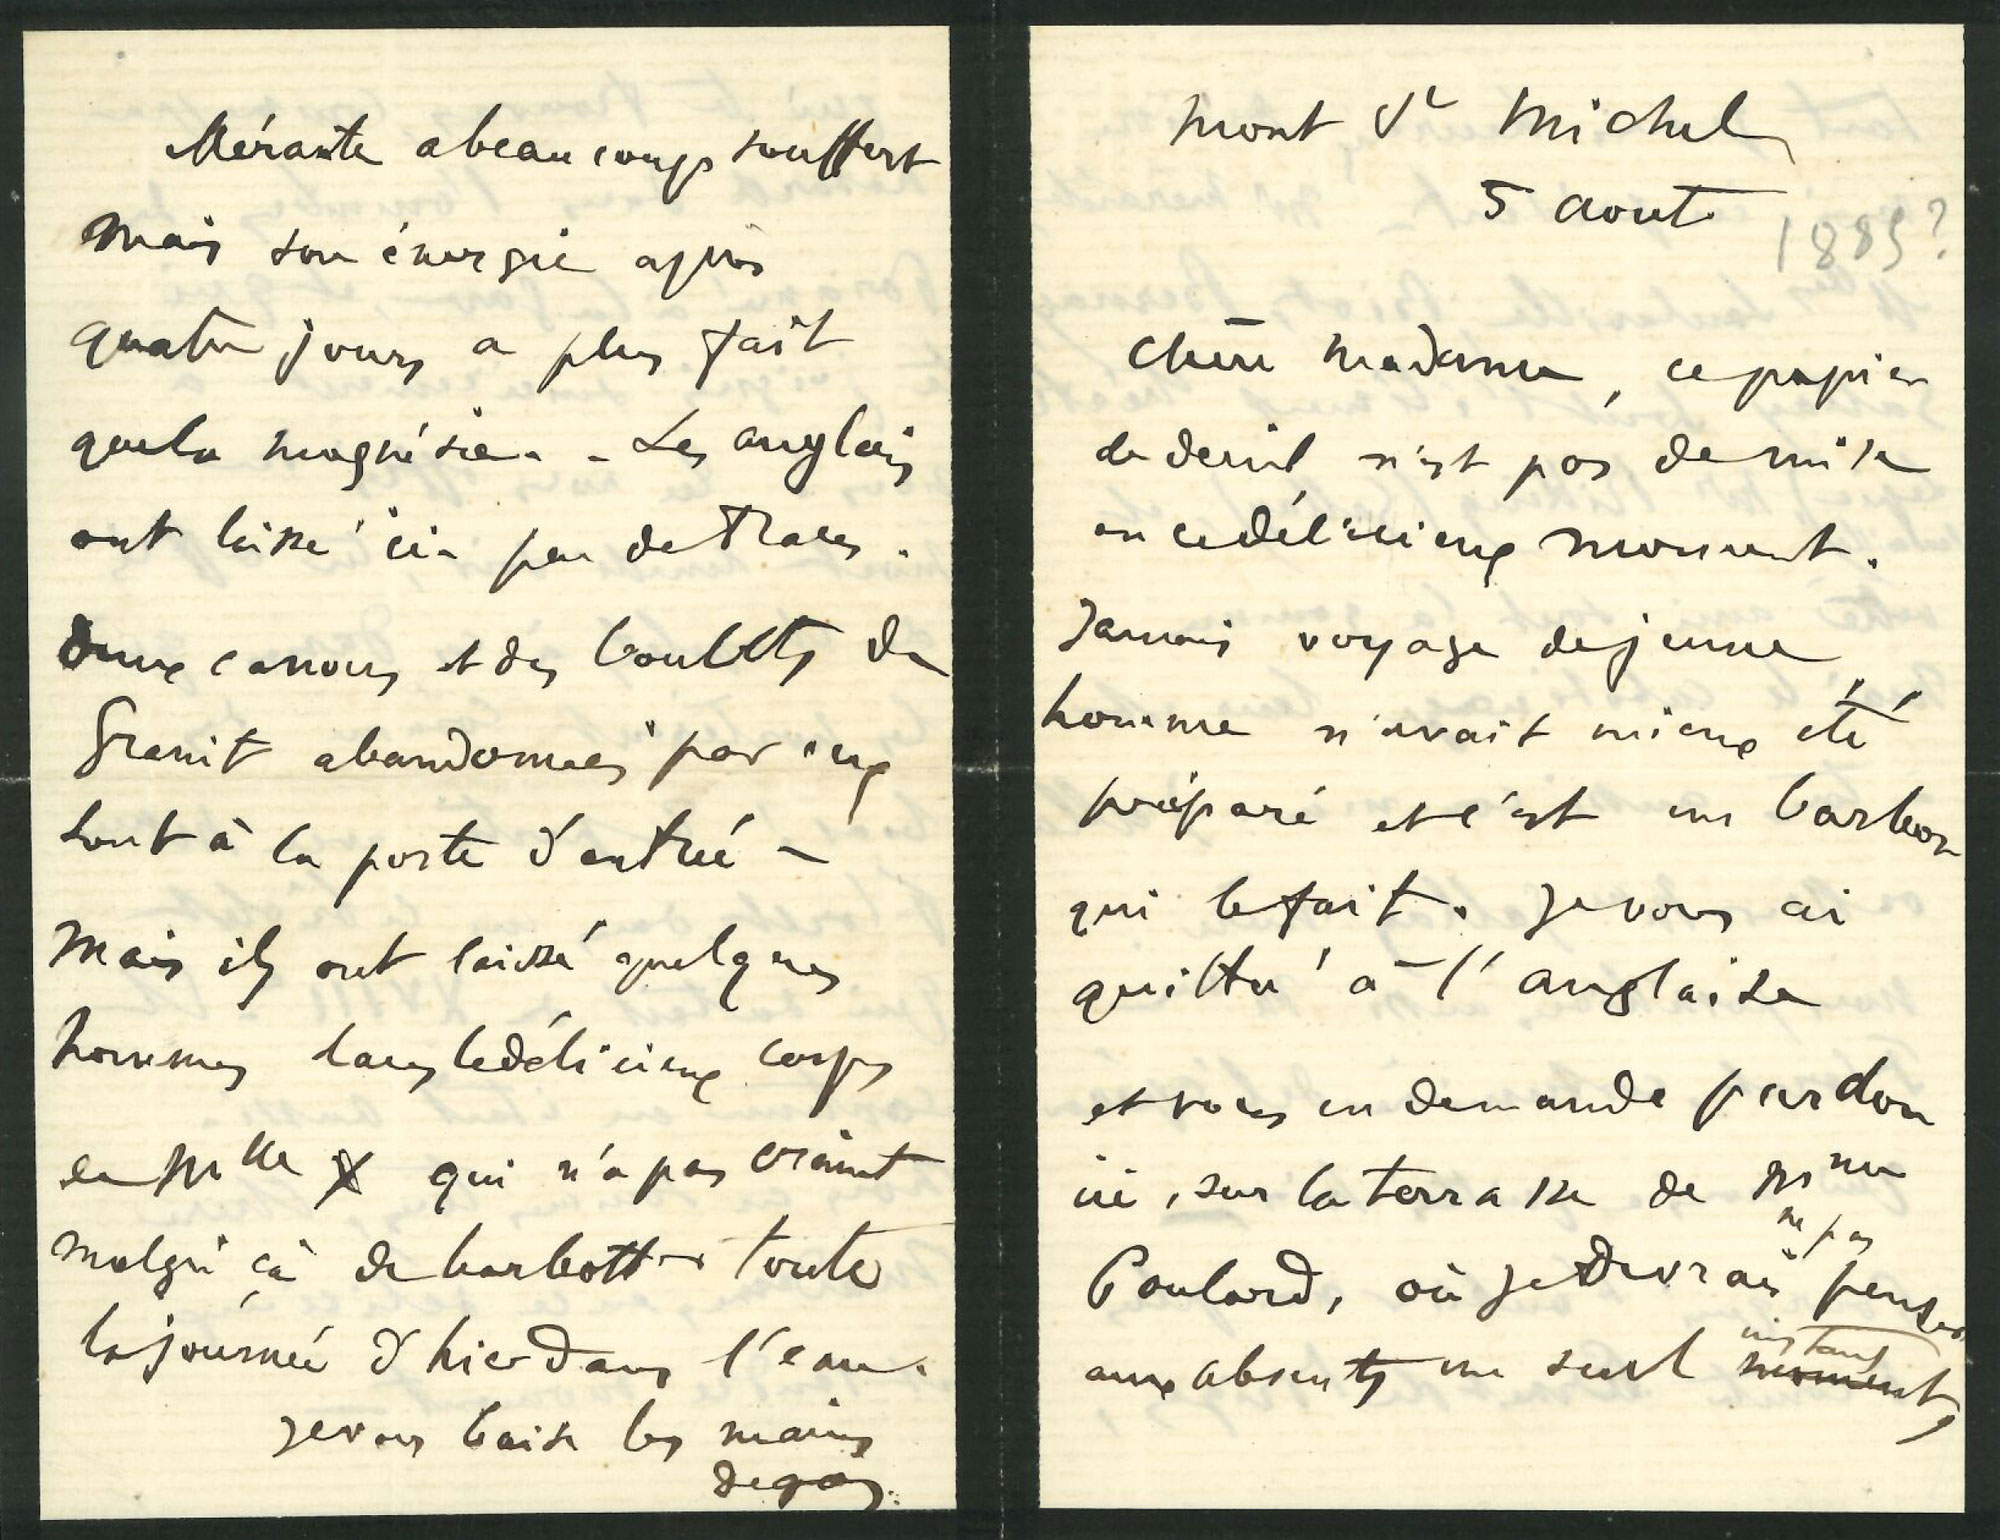 Mont St Michel
5 aout
1885?
Chère Madame, ce papier
de deuil n'est pas de mise
en ce délicieux moment.
Jamais voyage de jeune
homme n'avait mieux été
préparé et c'est un barbon
qui le fait. Je vous ai
quitté à l'anglaise
et vous en demande pardon
ici, sur la terrasse de Mme
Poulard, où je devrais ne pas penser
aux absents un seul moment instant,
Mérante a beaucoup souffert
mais son énergie après
quatre jours a plus fait
que la magnésie. - Les anglais
ont laissé ici peu de traces.
Deux canons et des boulets de
granit abandonnés par eux
sont à la porte d'entrée -
Mais ils ont laissé quelques
hommes dans le délicieux corps
de Mlle X qui n'a pas craint
malgré çà de barbotter toute
la journée d'hier dans l'eau.
Je vous baise les mains
Degas.